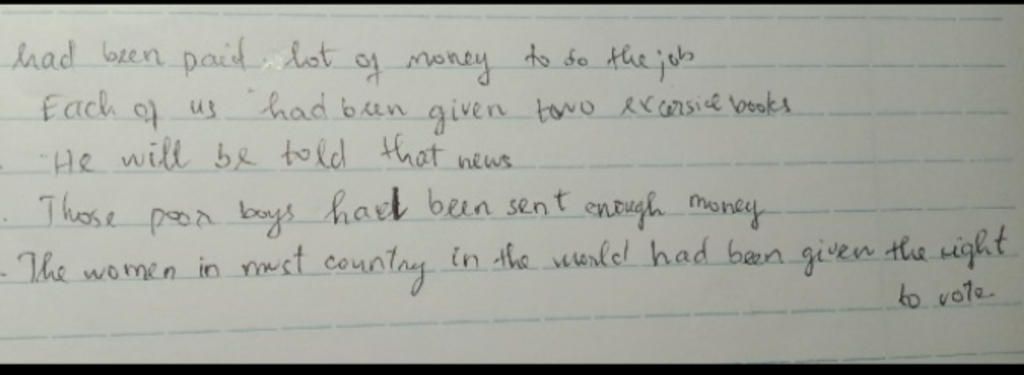 had been paid lot of money to do the job
Each of us had been given two excersice books
He will be told that news
Those poor boys had been sent enough money
The women in most country in the world had been given the right
to vote